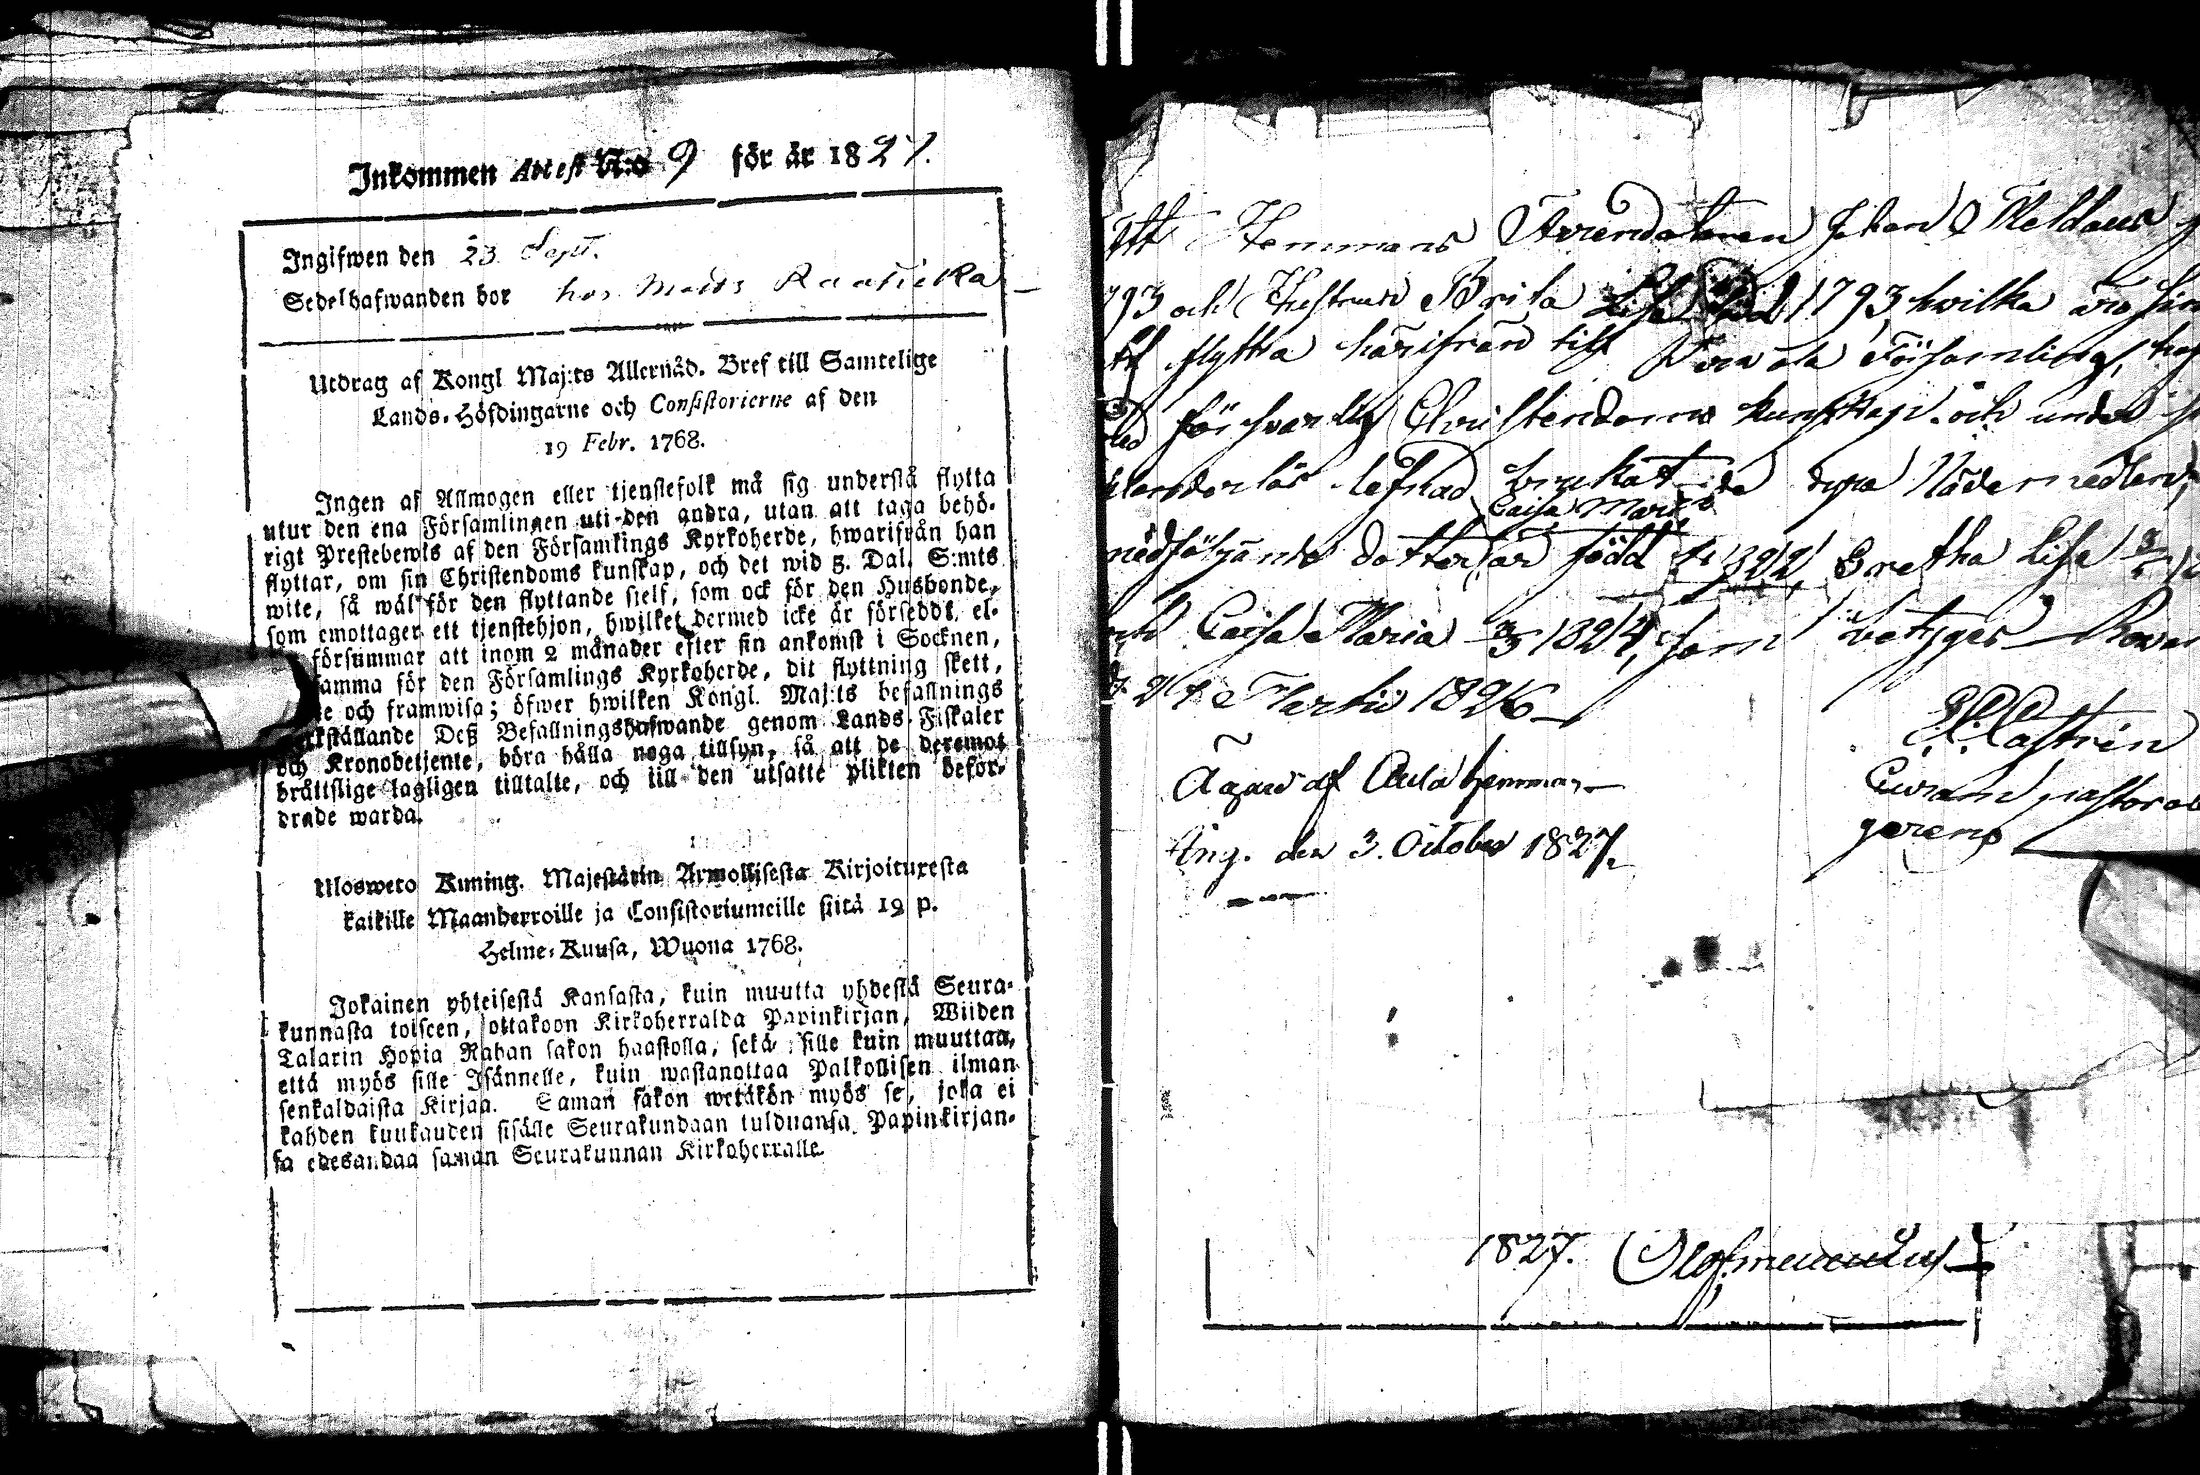 Inkommen Attest N:o 9 för år 1827.
Ingifwen den 23 Sept.
Sedelhafwanden bor hos Matts
Utdrag af Kongl Maj:ts Allernåd. Bref till Samtelige
Lands-Höfdingarne och Consistorierne af den
19 Febr. 1768.
Ingen af Allmogen eller tjenstefolk må sig understå flytta
utur den ena Församlingen uti den andra, utan att taga behö-
rigt Prestebewis af den Församlings Kyrkoherde, hwarifrån han
flyttar, om sin Christendoms kunskap, och det wid 5. Dal. S:mts
wite, så wäl för den flyttande sjelf, som ock för den Husbonde,
som emottager ett tjenstehjon, hwilket dermed icke är försedd, el-
försummar att inom 2 månader efter sin ankomst i Socknen,
samma för den Församlings Kyrkoherde, dit flyttning skett,
te och framwisa; öfwer hwilken Kongl. Maj:ts befallnings
werkställande Deß Befallningshafwande genom Lands-Fiskaler
och Kronobetjente, böra hålla noga tillsyn, så att de deremot
brättslige lagligen tilltalte, och till den utsatte plikten befor-
drade warda.
Ulosweto Kuning. Majestätin Armollisesta Kirjoituxesta
kaikille Maanherroille ja Consistoriumeille siitä 19 p.
Helme-Kuusa, Wuona 1768.
Jokainen yhteisestä Kansasta, kuin muutta yhdestä Seura-
kunnasta toiseen, ottakoon Kirkoherralda Papinkirjan, Wiiden
Talarin Hopia Rahan sakon haastolla, sekä sille kuin muuttaa,
että myös sille Isännelle, kuin wastanottaa Palkollisen ilman
senkaldaista Kirjaa. Saman sakon wetäkön myös se, joka ei
kahden kuukauden sisälle Seurakundaan tulduansa Papinkirjan-
sa edesandaa saman Seurakunnan Kirkoherralle.
Att Hemmans Arrendatoren Johan
793 och Hustrun Brita Lisa 1793 hwilka äro
att flytta härifrån till Församling,
försvarlig Christendoms kunskap och under
lefnad brukat de dyra Nådemedlen,
Caisa Maria
medföljande döttrar född 1822, Gretha Lisa
och Caisa Maria 3/3 1824, som betygas
d. 21 Martii 1826
Castrén
pastoral
gerens
Äga af hemman
Ing. den 3. October 1827.
1827.